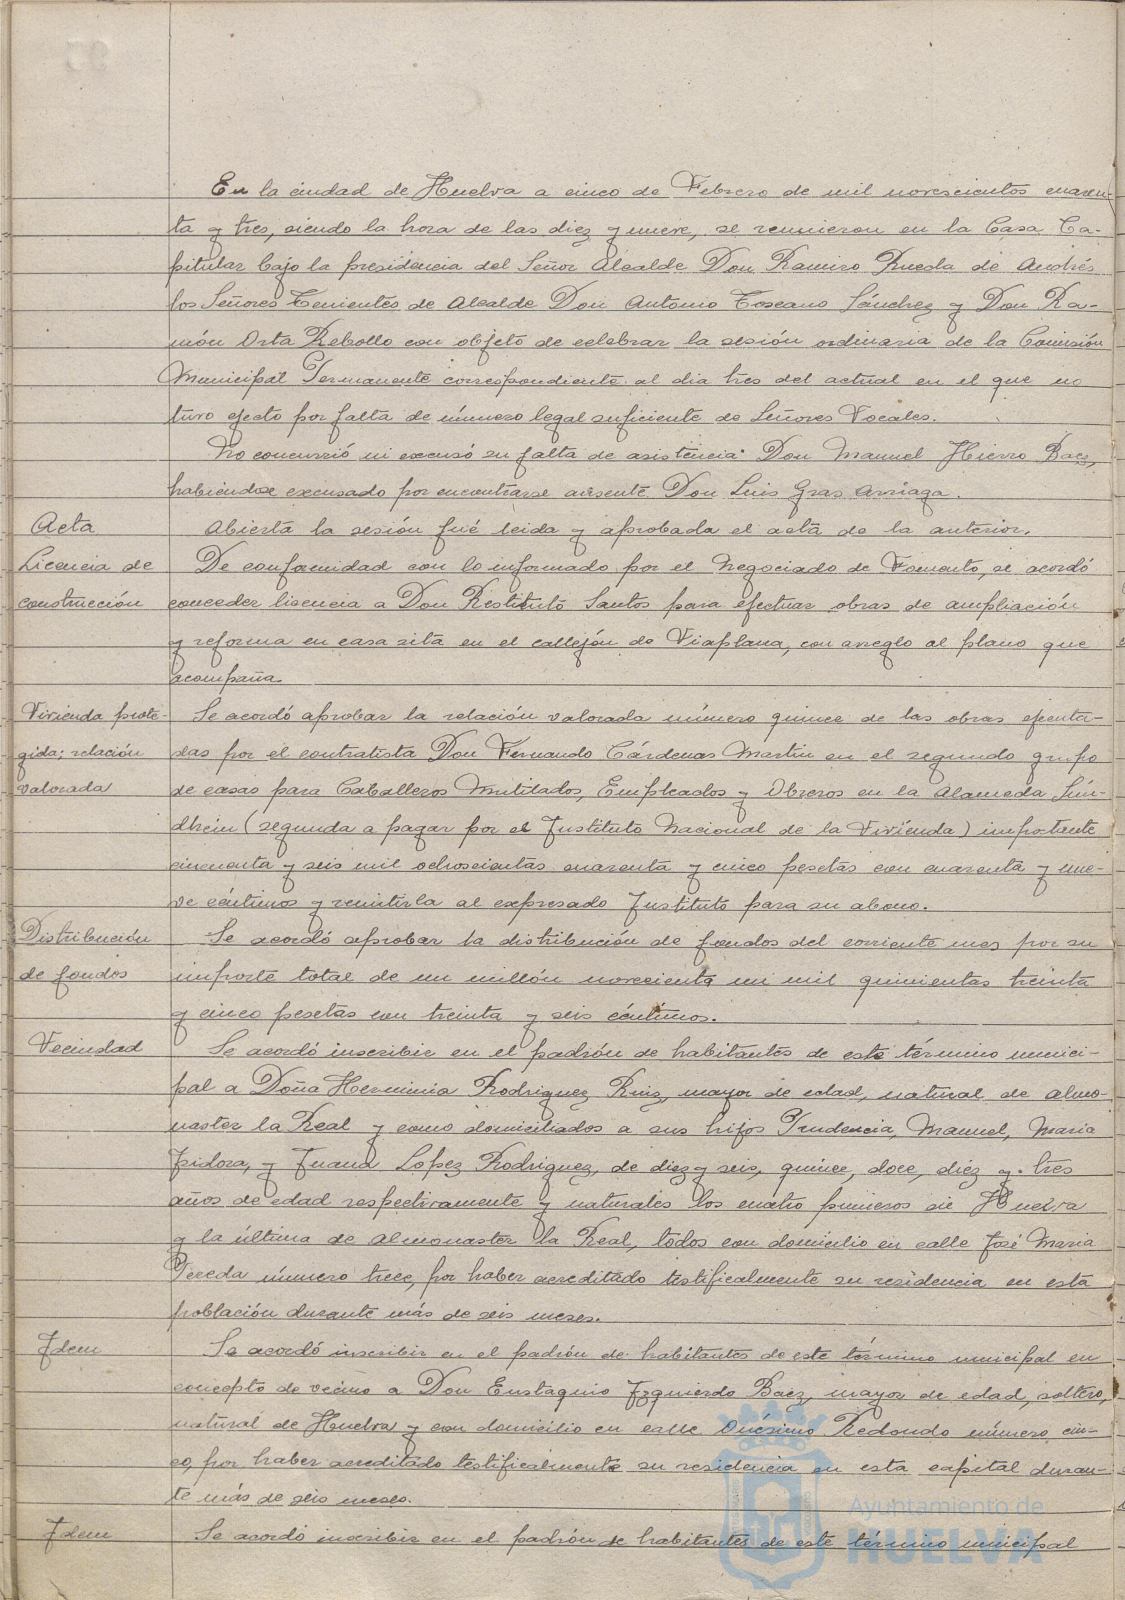 En la ciudad de Huelva a cinco de Febrero de mil novescientos cuaren-
ta y tres, siendo la hora de las diez y nueve, se reunieron en la Casa Ca-
pitular bajo la presidencia del Señor Alcalde Don Ramiro Rueda de Andrés
los Señores Tenientes de Alcalde Don Antonio Toscano Sánchez y Don Ra-
món Orta Rebollo con objeto de celebrar la sesión ordinaria de la Comisión
Municipal Permanente correspondiente al dia tres del actual en el que no
tuvo efecto por falta de número legal suficiente de Señores Vocales.
No concurrió ni excusó su falta de asistencia Don Manuel Hierro Baez,
habiendose excusado por encontrarse ausente Don Luis Gras Arriaga.
Acta
Abierta la sesión fué leida y aprobada el acta de la anterior.
Licencia de
construcción
De conformidad con lo informado por el Negociado de Fomento, se acordó
conceder lisencia a Don Restituto Santos para efectuar obras de ampliación
y reforma en casa sita en el callejón de Viaplana, con arreglo al plano que
acompaña.
Vivienda prote-
gida; relación
valorada
Se acordó aprobar la relación valorada número quince de las obras ejecuta-
das por el contratista Don Fernando Cárdenas Martin en el segundo grupo
de casas para Caballeros Mutilados, Empleados y Obreros en la Alameda Sun-
dheim (segunda a pagar por el Instituto Nacional de la Vivienda) importante
cincuenta y seis mil ochoscientas cuarenta y cinco pesetas con cuarenta y nue-
ve céntimos y remitirla al expresado Instituto para su abono.
Distribución
de fondos
Se acordó aprobar la distribución de fondos del corriente mes por su
importe total de un millón novecienta un mil quinientas treinta
y cinco pesetas con treinta y seis céntimos.
Vecindad
Se acordó inscribir en el padrón de habitantes de este término munici-
pal a Doña Herminia Rodriguez Ruiz, mayor de edad, natural de Almo-
naster la Real y como domiciliados a sus hijos Prudencia, Manuel, Maria
Isidora, y Juana Lopez Rodriguez, de diez y seis, quince, doce, diez y tres
años de edad respectivamente y naturales los cuatro primeros de Huelva
y la última de Almonaster la Real, todos con domicilio en calle José Maria
Pereda número trece, por haber acreditado testificalmente su residencia en esta
población durante más de seis meses.
Idem
Se acordó inscribir en el padrón de habitantes de este término municipal en
concepto de vecino a Don Eustaquio Izquierdo Baez, mayor de edad, soltero,
natural de Huelva y con domicilio en calle Onésimo Redondo número cin-
co, por haber acreditado testificalmente su residencia en esta capital duran-
te más de seis meses.
Idem
Se acordó inscribir en el padrón de habitantes de este término municipal
Ayuntamiento de
HUELVA